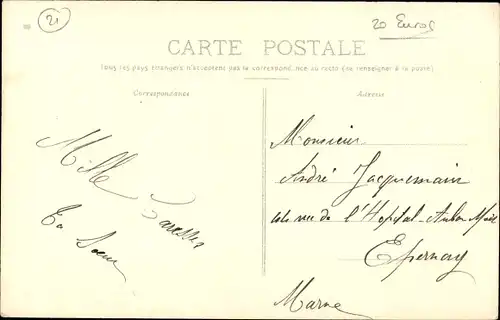 21
20 Euros
CARTE POSTALE
Tous les pays étrangers n'acceptent pas la correspondance au recto (se renseigner à la poste)
Correspondance
Adresse
Mille
Caresses
Ta Soeur
Monsieur
André Jacquemain
rue de l'Hopital-Auban-Moët
Epernay
Marne